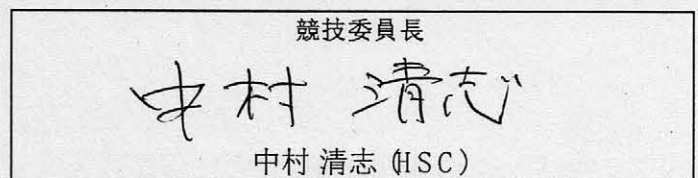 競技委員長
中村 清志
中村 清志 (HSC)